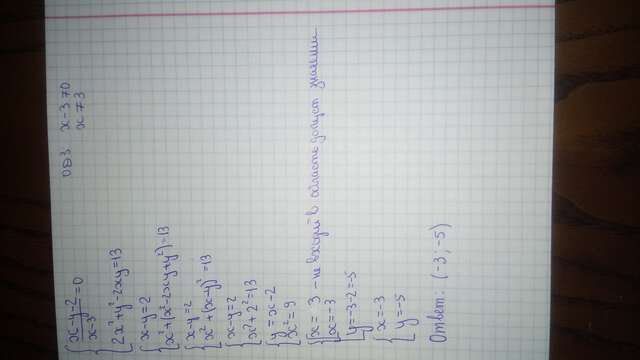 x-y-2 / x-3 = 0 ОДЗ x-3≠0
x≠3
2x²+y²-2xy=13
x-y=2
x²+(x²-2xy+y²)=13
x-y=2
x²+(x-y)²=13
x-y=2
x²+2²=13
y=x-2
x²=9
x= 3 - не входит в область допуст значений
x=-3
y=-3-2=-5
x=-3
y=-5
Ответ: (-3;-5)